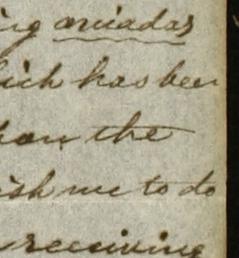 ing criadas
hich has been
han the
ish me to do
receiving